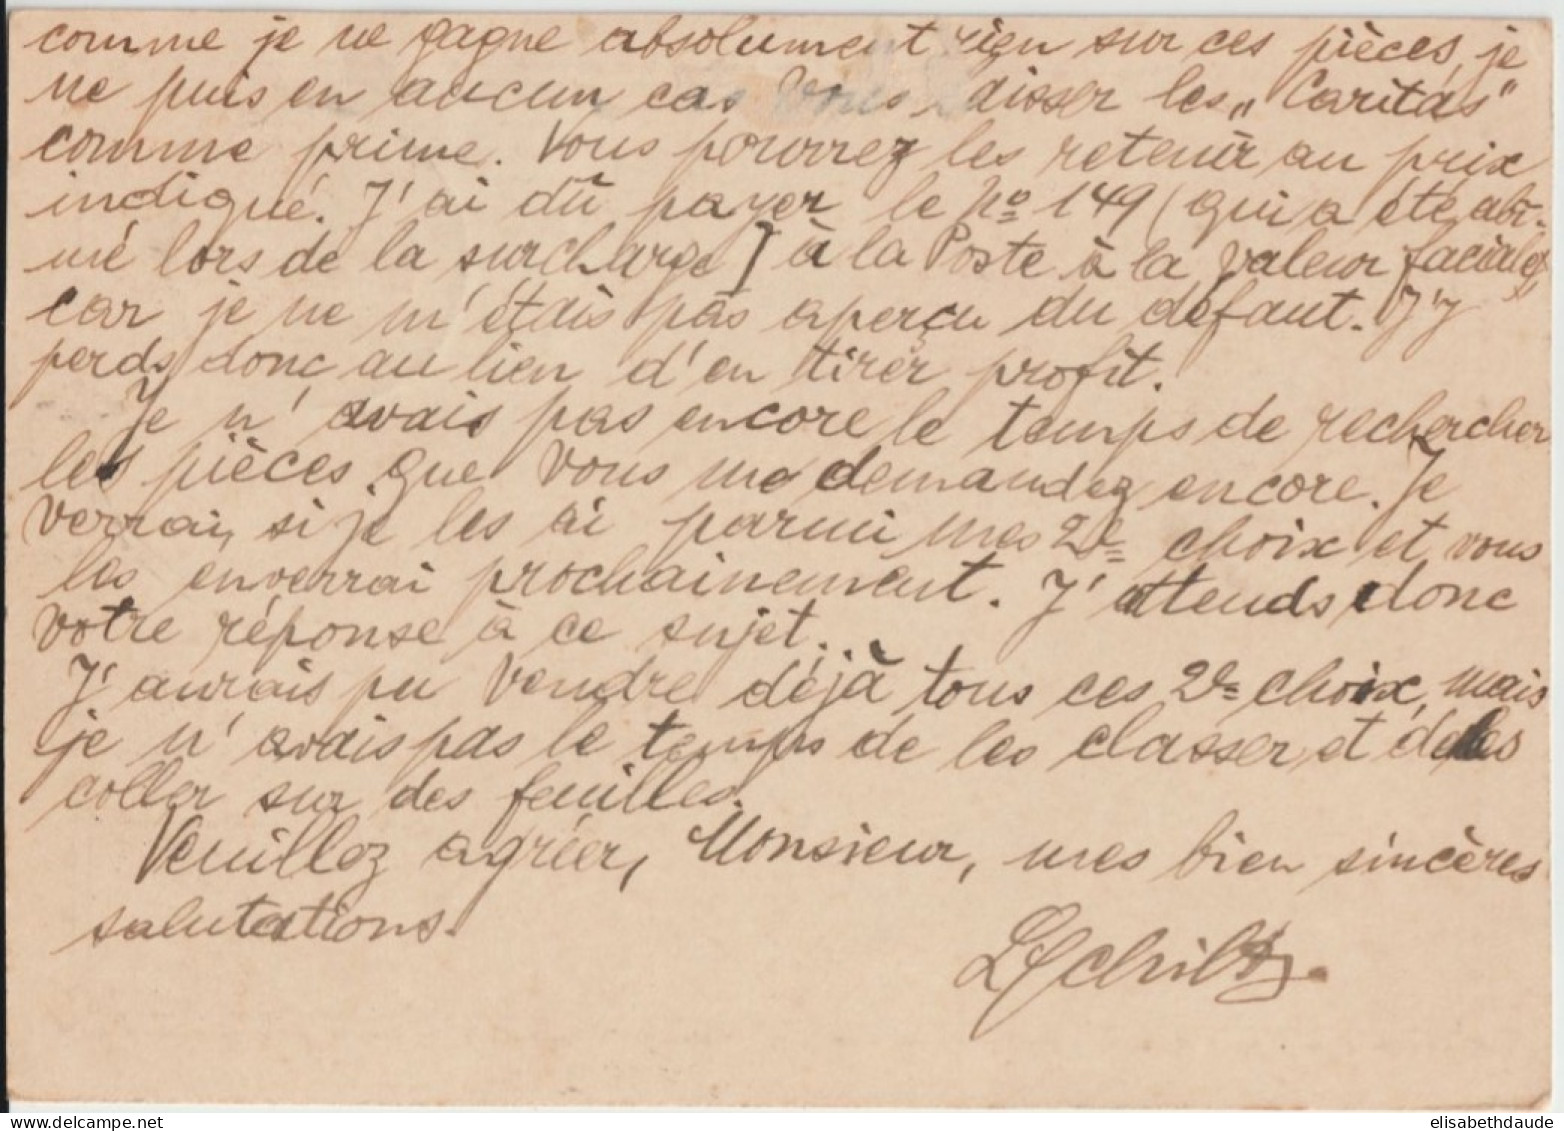 comme je ne gagne absolument rien sur ces pièces, je
ne puis en aucun cas vous laisser les „Caritas"
comme prime. Vous pourrez les retenir au prix
indiqué. J'ai dû payer le No 149 (qui a été abî-
mé lors de la surcharge) à la Poste à la valeur faciale,
car je ne m'étais pas aperçu du défaut. J'y
perds donc au lieu d'en tirer profit.
Je n'avais pas encore le temps de rechercher
les pièces que vous me demandez encore. Je
verrai, si je les ai parmi mes 2e choix et vous
les enverrai prochainement. J'attends donc
votre réponse à ce sujet.
J'aurais pu vendre déjà tous ces 2e choix, mais
je n'avais pas le temps de les classer et de les
coller sur des feuilles.
Veuillez agréer, Monsieur, mes bien sincères
salutations.
elisabethdaude
www.delcampe.net